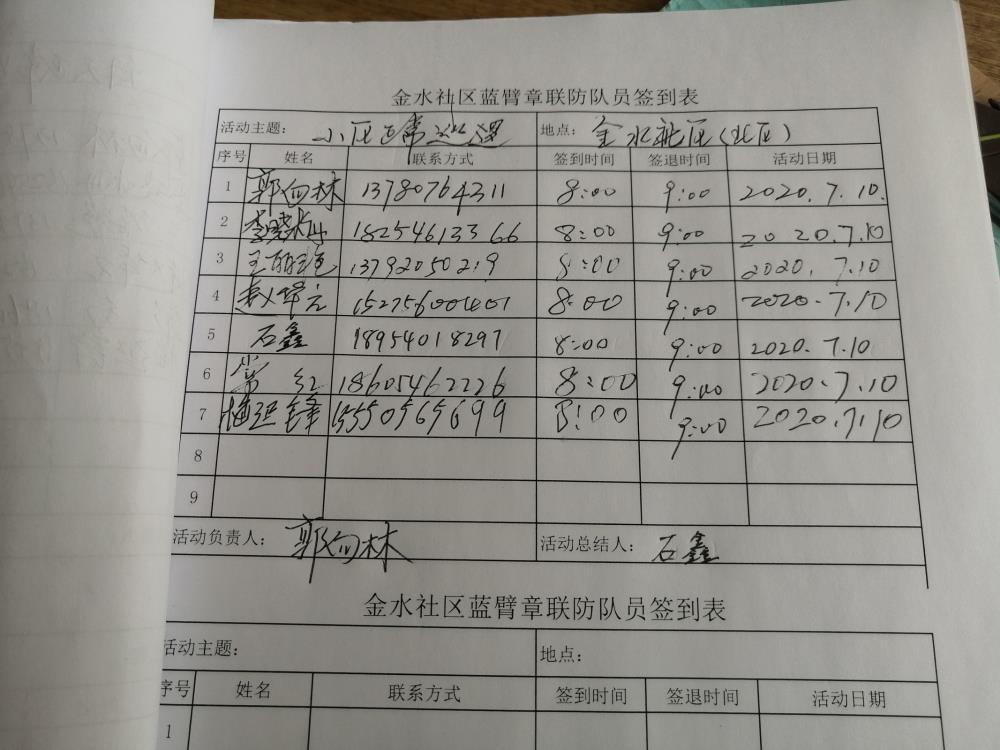 金水社区蓝臂章联防队员签到表
活动主题： 小区正常巡逻 地点： 金水社区（北区）
序号 姓名 联系方式 签到时间 签退时间 活动日期
1 郭向林 13780764311 8:00 9:00 2020.7.10.
2 李晓梅 18254613366 8:00 9:00 2020.7.10
3 王丽艳 13792050219 8:00 9:00 2020.7.10
4 8:00 9:00 2020.7.10
5 石鑫 18954018297 8:00 9:00 2020.7.10
6 常红 18605462226 8:00 9:00 2020.7.10
7 15550565699 8:00 9:00 2020.7.10
8
9
活动负责人： 郭向林 活动总结人： 石鑫
金水社区蓝臂章联防队员签到表
活动主题： 地点：
序号 姓名 联系方式 签到时间 签退时间 活动日期
1